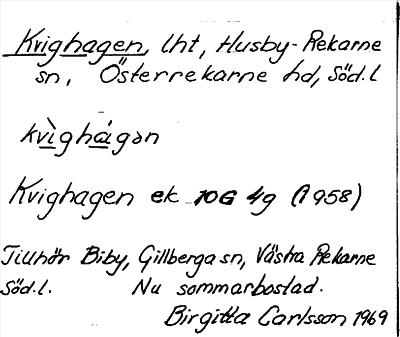 Kvighagen, lht, Husby-Rekarne
sn, Österrekarne hd, Söd.l
kvìghágən
Kvighagen ek 10G 4g (1958)
Tillhör Biby, Gillberga sn, Västra Rekarne
Söd.l. Nu sommarbostad.
Birgitta Carlsson 1969